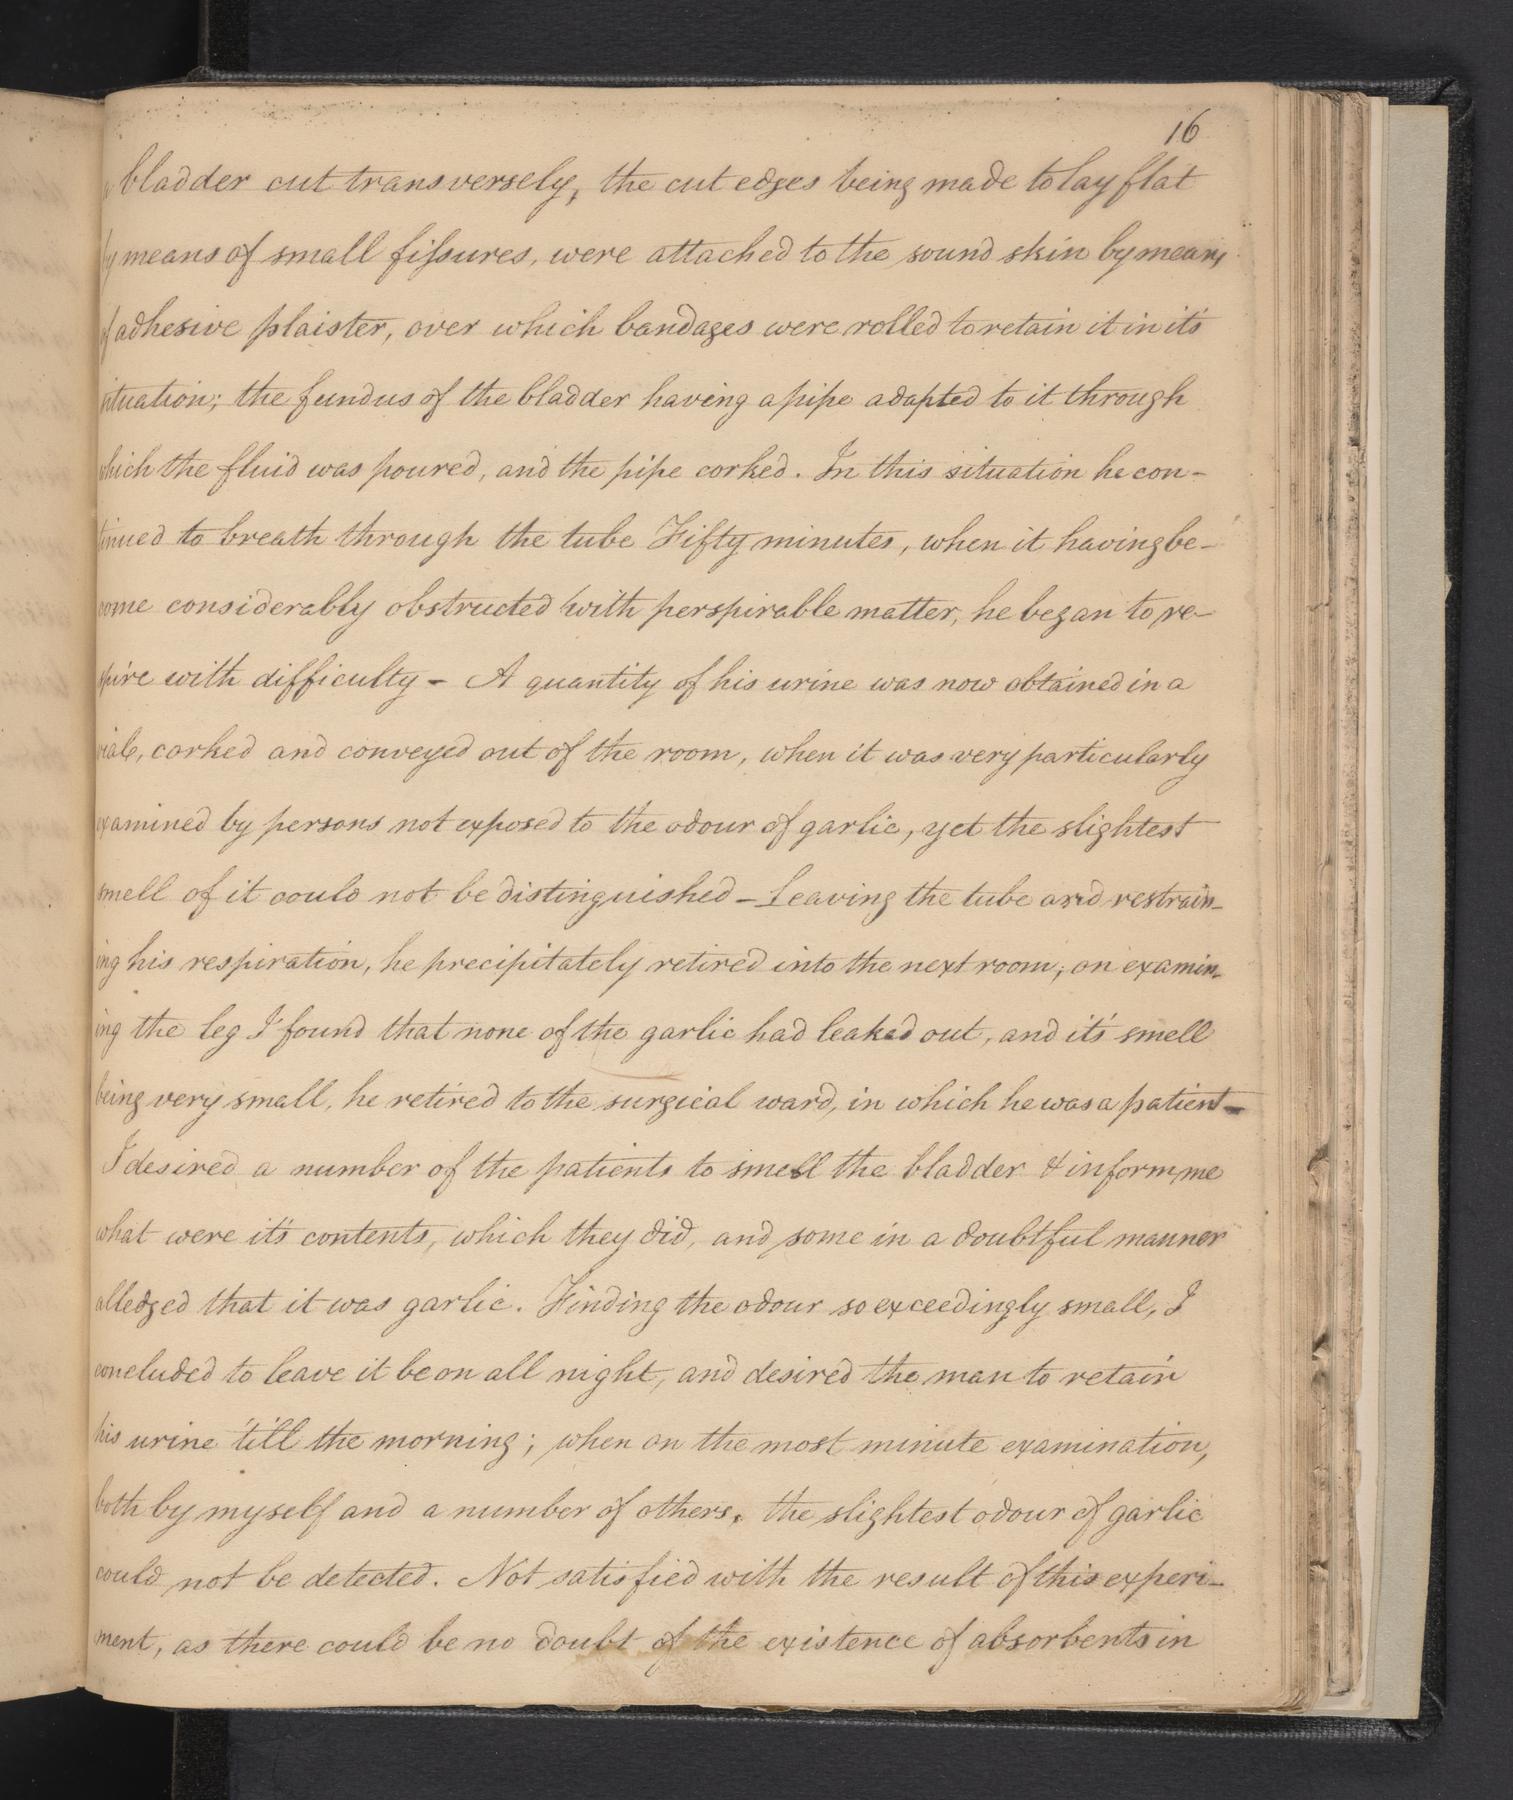 16
a bladder cut transversely, the cut edges being made to lay flat
by means of small fissures, were attached to the sound skin by means
of adhesive plaister, over which bandages were rolled to retain it in it's
situation; the fundus of the bladder having a pipe adapted to it through
which the fluid was poured, and the pipe corked. In this situation he con-
tinued to breath through the tube Fifty minutes, when it having be-
come considerably obstructed with perspirable matter, he began to re-
spire with difficulty - A quantity of his urine was now obtained in a
vial, corked and conveyed out of the room, when it was very particularly
examined by persons not exposed to the odour of garlic, yet the slightest
smell of it could not be distinguished - Leaving the tube and restrain-
ing his respiration, he precipitately retired into the next room; on examin-
ing the leg I found that none of the garlic had leaked out, and it's smell
being very small, he retired to the surgical ward, in which he was a patient -
I desired a number of the patients to smell the bladder & inform me
what were it's contents, which they did, and some in a doubtful manner
alledged that it was garlic. Finding the odour so exceedingly small, I
concluded to leave it be on all night, and desired the man to retain
his urine 'till the morning; when on the most minute examination,
both by myself and a number of others, the slightest odour of garlic
could not be detected. Not satisfied with the result of this experi-
ment, as there could be no doubt of the existence of absorbents in